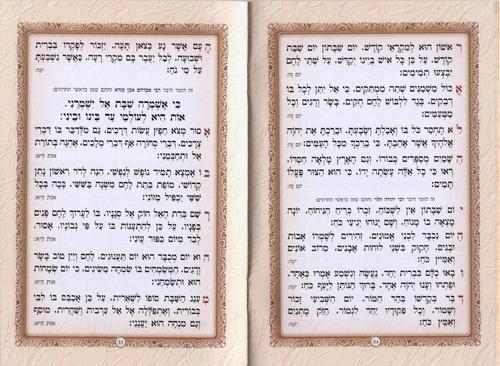 ראשון הוא למקראי קודש. יום שבתון יום שבת
קודש. על כן כל איש ביינו יקדש. על שתי לחם
יבצעו תמימים:
יום זה:
אכול משמנים שתה ממתקים. כי אל יתן לכל בו
דבקים. בגד ללבוש לחם חקים. בשר ודגים וכל
מטעמים:
יום זה:
לא תחסר כל בו ואכלת ושבעת. וברכת את יהוה
אלהיך אשר אהבת. כי ברכך מכל העמים:
יום זה:
השמים מספרים כבודו. וגם הארץ מלאה חסדו.
ראו כי כל אלה עשתה ידו. כי הוא הצור פעלו
תמים:
יום זה:
זה הזמר חיברו רבי יהודה הלוי וחתם שמו בראשי החרוזים
יום שבתון אין לשכוח. זכרו כריח הניחוח. יונה
מצאה בו מנוח. ושם ינוחו יגיעי כח:
היום נכבד לבני אמונים. זהירים לשמרו אבות
ובנים. חקוק בשני לוחות אבנים. מרוב אונים
ואמיץ כח:
יונה:
ובאו כלם בברית יחד. נעשה ונשמע אמרו כאחד.
ופתחו וענו יהוה אחד. ברוך הנותן ליעף כח:
יונה:
דבר בקדשו בהר המור. יום השביעי זכור
ושמור. וכל פקודיו יחד לגמור. חזק מתנים
ואמץ כח:
יונה:
34
העם אשר נע כצאן תעה. יזכור לפקדו בברית
ושבועה. לבל יעבר בם מקרה רעה. כאשר נשבעת
על מי נח:
יונה:
זה הזמר חיבר רבי אברהם אבן עזרא וחתם שמו בראשי החרוזים
כי אשמרה שבת אל ישמרני.
אות היא לעולמי עד בינו וביני:
אסור מצא חפץ עשות דרכים. גם מלדבר בו דברי
צרכים. דברי סחורה אף דברי מלכים. אהגה בתורת
אל ותחכמני:
אות היא:
בו אמצא תמיד נופש לנפשי. הנה לדור ראשון נתן
קדושי. מופת בתת לחם משנה בששי. ככה בכל
ששי יכפיל מזוני:
אות היא:
רשם בדת האל חוק אל סגניו. בו לערוך לחם פנים
בפניו. על כן להתענות בו על פי נבוניו. אסור.
לבד מיום כפור עוני:
אות היא:
הוא יום מכובד הוא יום תענוגים. לחם ויין טוב בשר
ודגים. המשמחים בו שמחה משיגים. כי יום שמחות
הוא ותשמחני:
אות היא:
33